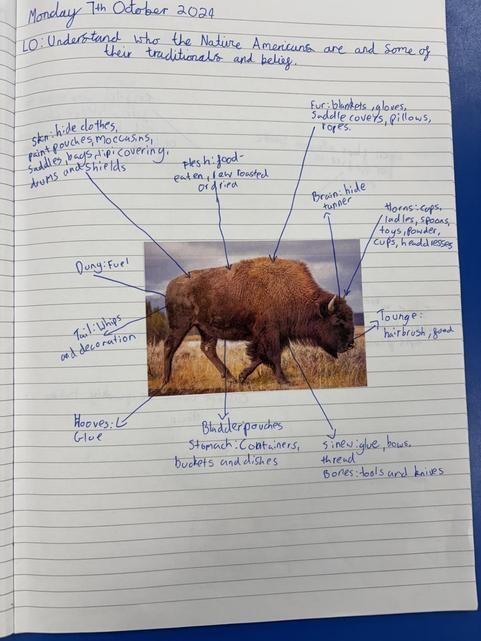 Monday 7th October 2024
LO: Understand who the Native Americans are and some of
their traditionals and belief.
Fur: blankets, gloves,
Saddle covers, pillows,
ropes.
Skin: hide clothes,
paint pouches, moccasins,
Saddles, bags, tipi covering,
drums and shields
Flesh: food-
eaten, raw roasted
or dried
Brain: hide
tunner
Horns: cups,
ladles, spoons,
toys, powder,
cups, headdresses
Dung: Fuel
Tail: Whips
and decoration
Tounge:
hairbrush, food
Hooves:
Glue
Bladder pouches
Stomach: Containers,
buckets and dishes
Sinew: glue, bows,
thread
Bones: tools and knives